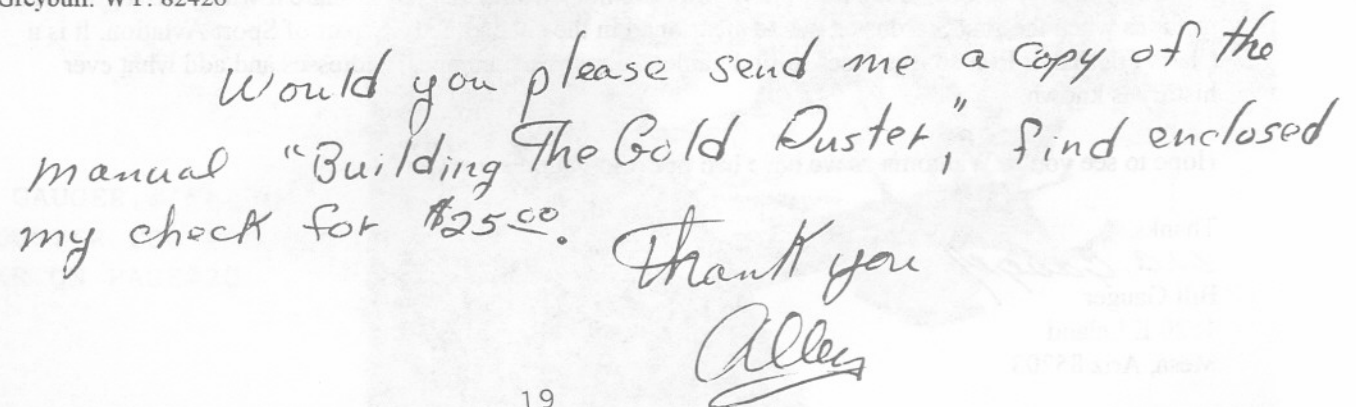 Greybull. WY. 82426
Would you please send me a copy of the
manual "Building The Gold Duster," find enclosed
my check for $25.00.
Thank you
Allen
19